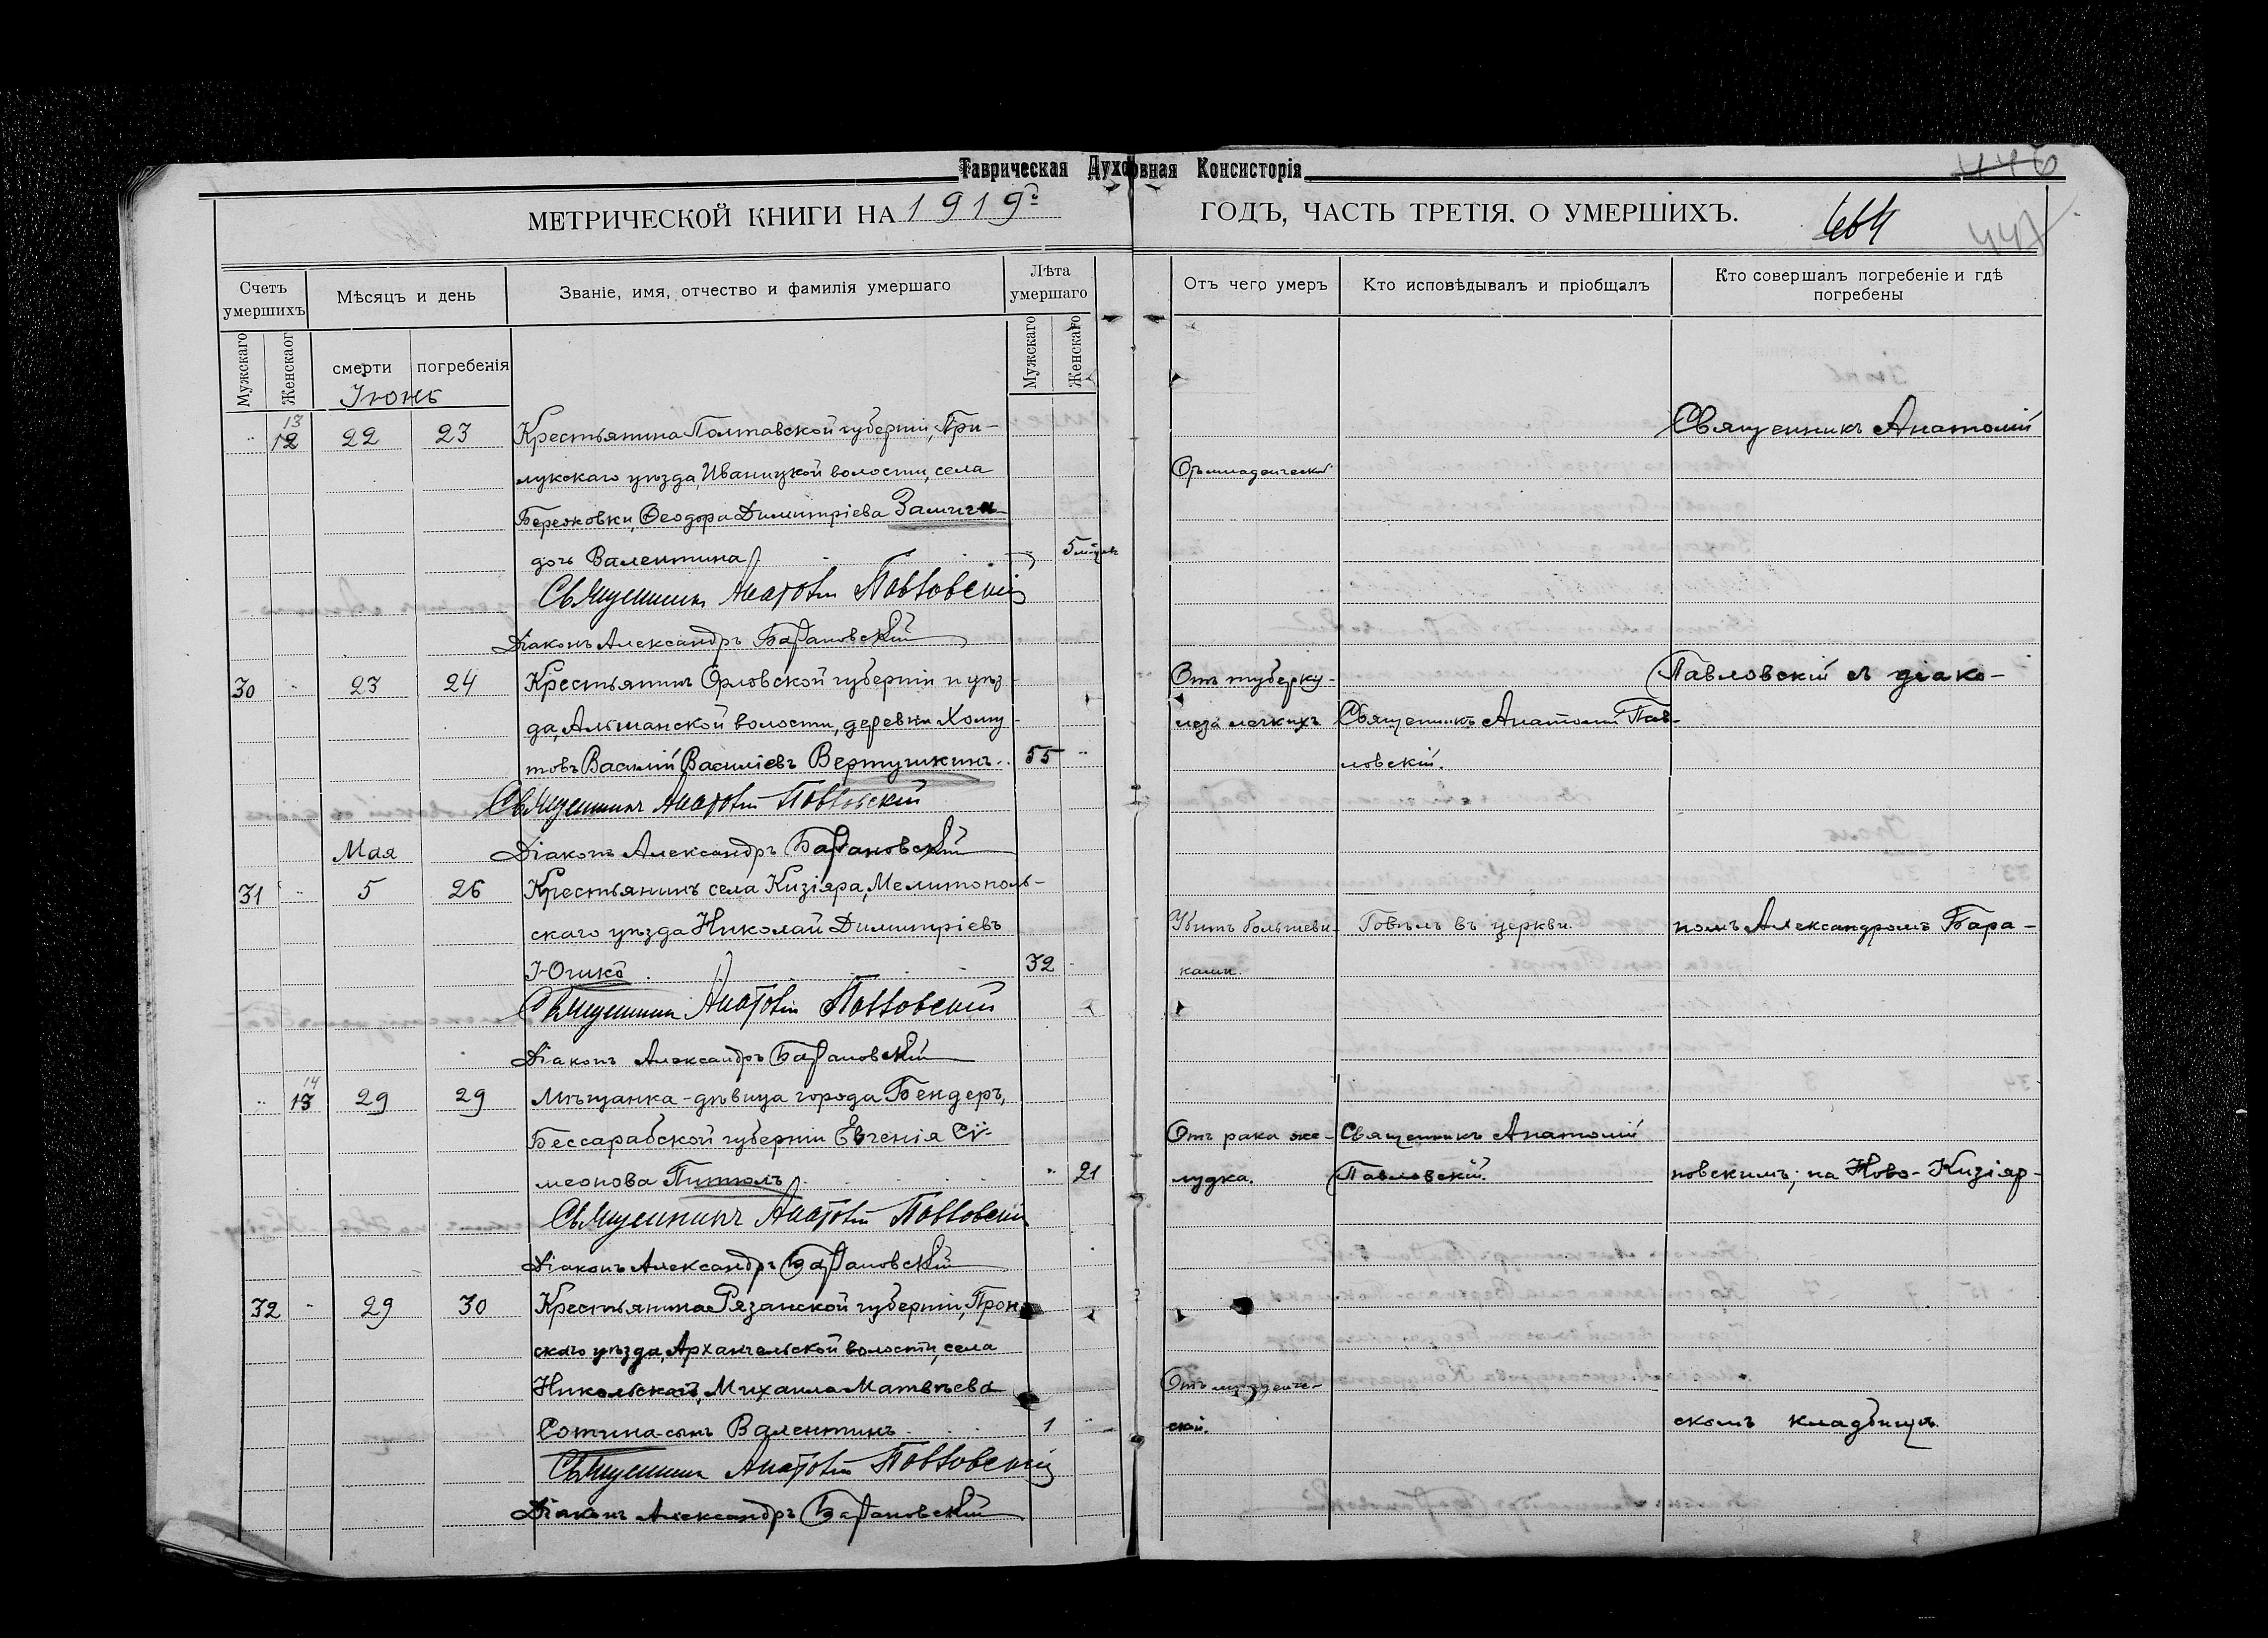 Таврическая Духовная Консисторія
МЕТРИЧЕСКОЙ КНИГИ НА 1919г ГОДЪ, ЧАСТЬ ТРЕТІЯ. О УМЕРШИХЪ.
446
464
447
Счетъ умершихъ
Мѣсяцъ и день
Званіе, имя, отчество и фамилія умершаго
Лѣта умершаго
Отъ чего умеръ
Кто исповѣдывалъ и пріобщалъ
Кто совершалъ погребеніе и гдѣ погребены
Мужскаго
Женскаог
смерти
погребенія
Мужскаго
Женскаго
Іюнь
13
12 22 23 Крестьянина Полтавской губерніи, При-
Священникъ Анатолій
лукскаго уѣзда, Иваницкой волости, села
Отъ младенческой
Березовки, Ѳеодора Димитріева
дочь Валентина
5 мѣсяц.
Священникъ Анатолій Павловскій
Діаконъ Александръ Барановскій
30 23 24 Крестьянинъ Орловской губерніи и уѣз-
Отъ туберку-
Павловскій съ діако-
да, Альшанской волости, деревни Хому-
леза легкихъ Священникъ Анатолій Пав-
товъ Василій Василіевъ Вертушкинъ. 55
ловскій.
Священникъ Анатолій Павловскій
Мая
Діаконъ Александръ Барановскій
31 5 26 Крестьянинъ села Кизіяра, Мелитополь-
скаго уѣзда Николай Димитріевъ
Убитъ большеви- Говѣлъ въ церкви. номъ Александромъ Бара-
32
ками.
Священникъ Анатолій Павловскій
Діаконъ Александръ Барановскій
14
13 29 29 Мѣщанка-дѣвица города Бендеръ,
Бессарабской губерніи Евгенія Сѵ-
Отъ рака же- Священникъ Анатолій
меонова 21
лудка. Павловскій. новскимъ; на Ново-Кизіяр-
Священникъ Анатолій Павловскій
Діаконъ Александръ Барановскій
32 29 30 Крестьянина Рязанской губерніи, Прон-
скаго уѣзда, Архангельской волости, села
Никольскаго, Михаила Матвѣева
Отъ младенче-
Сотина-сынъ Валентинъ 1
ской.
скомъ кладбищѣ.
Священникъ Анатолій Павловскій
Діаконъ Александръ Барановскій